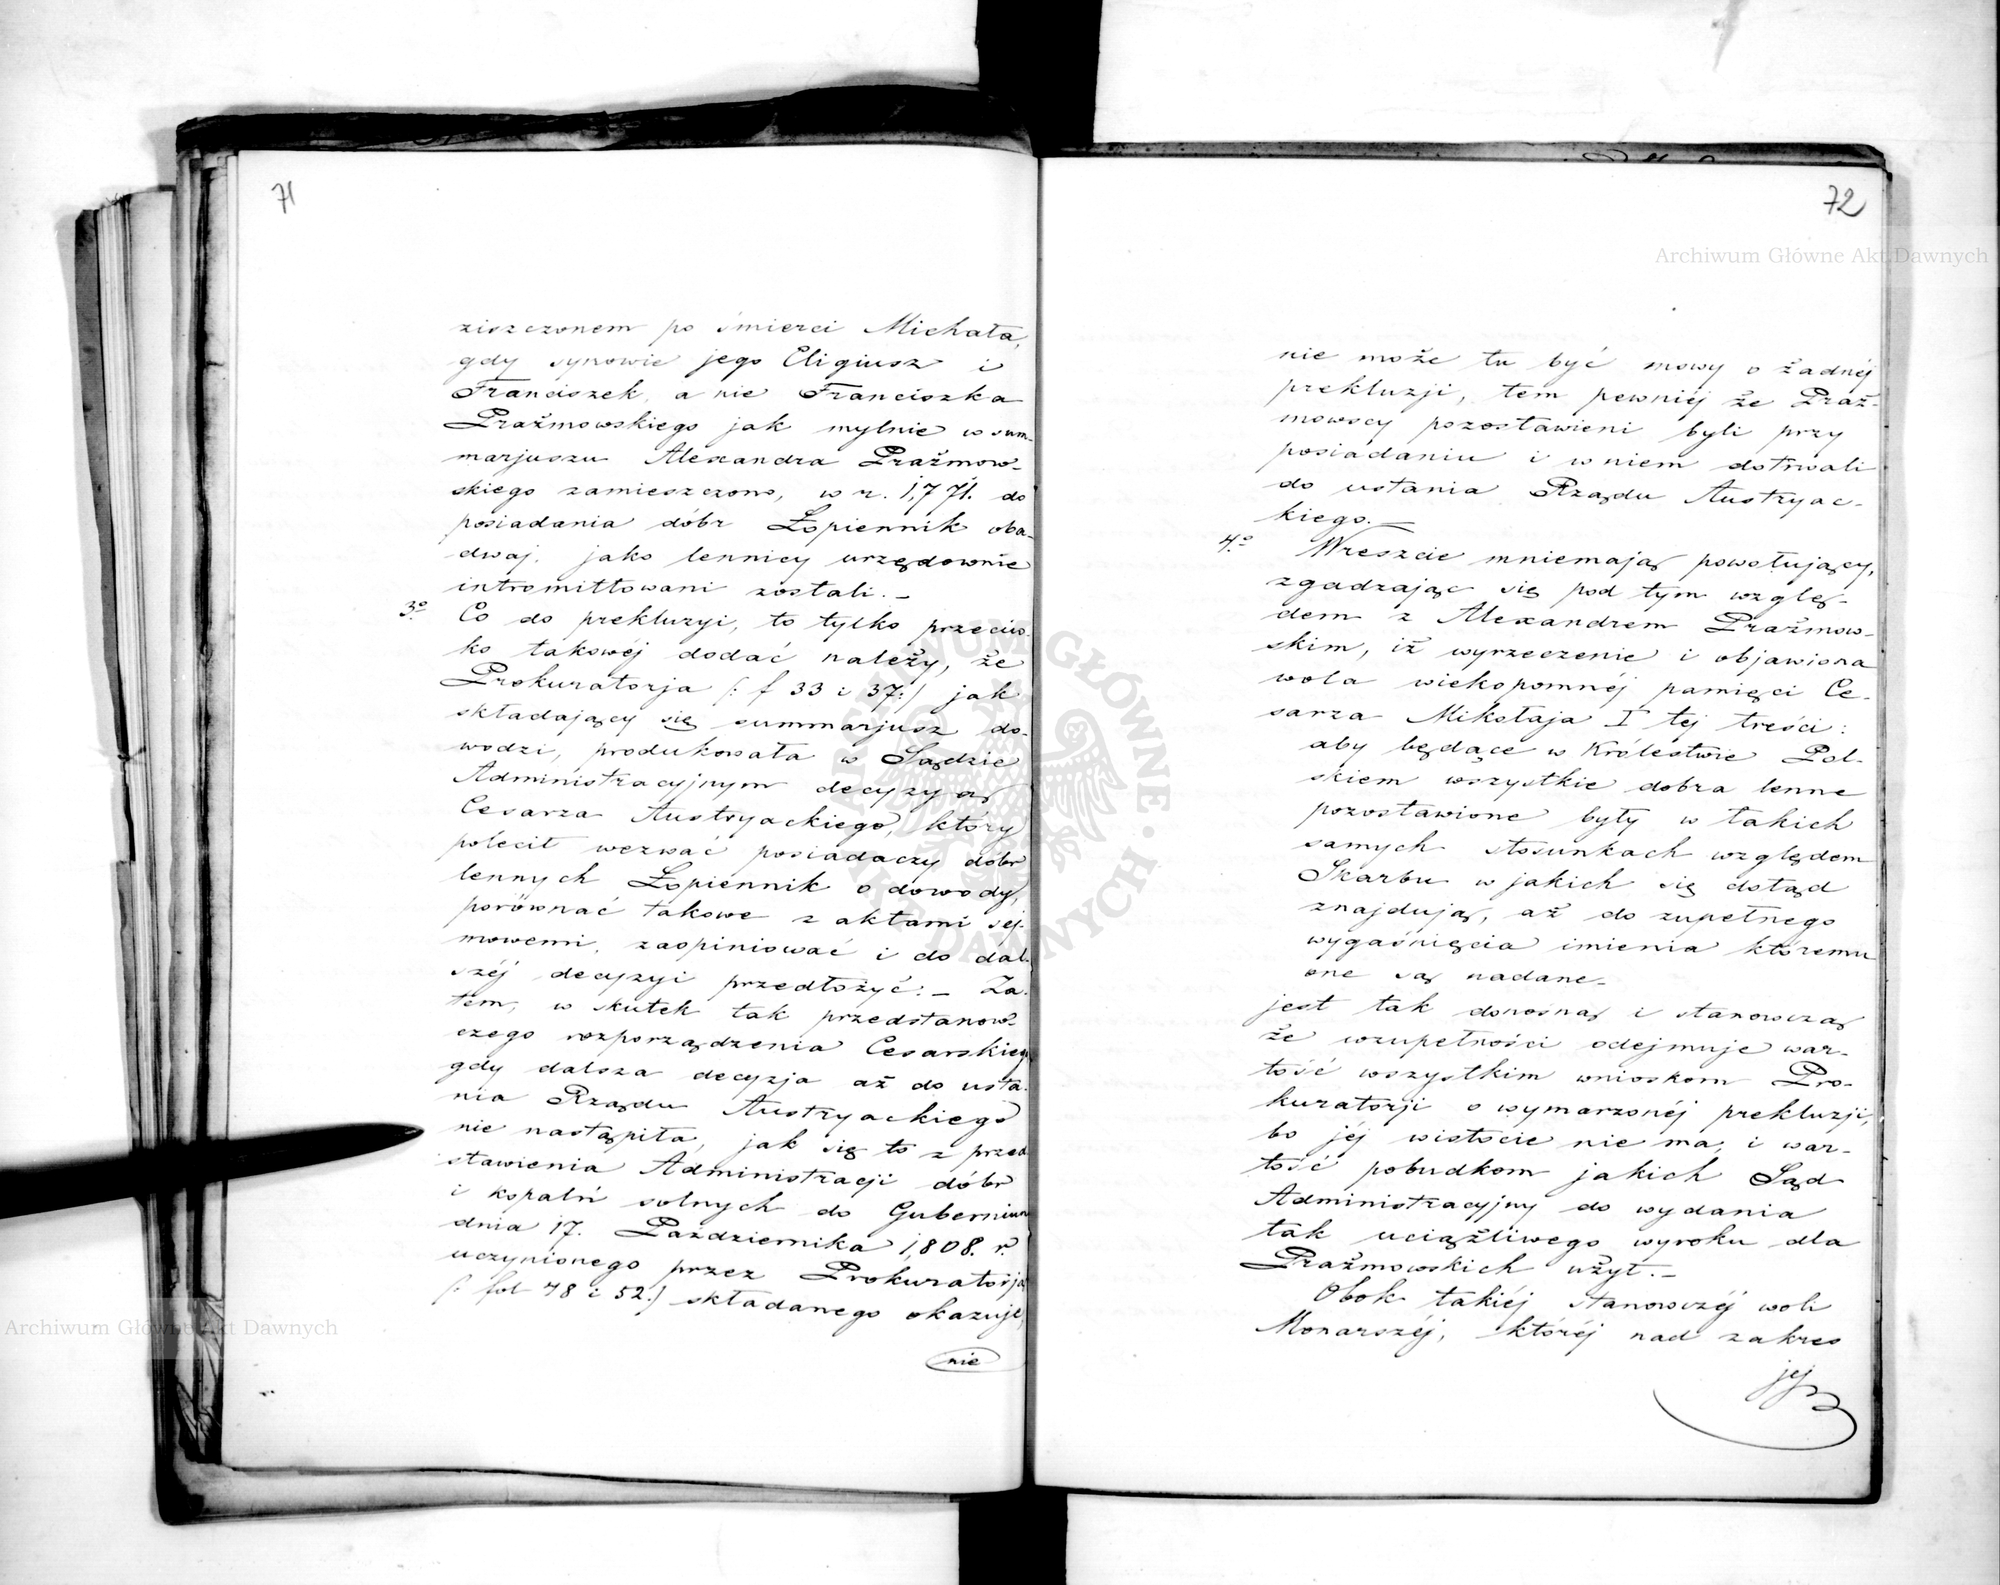 71
ziszczonem po śmierci Michała,
gdy synowie jego Eligiusz i
Franciszek, a nie Franciszka
Prażmowskiego jak mylnie w sum-
marjuszu Alexandra Prażmow-
skiego zamieszczono, w r. 1,771. do
posiadania dóbr Łopiennik oba-
dwaj, jako lennicy urzędownie
intromittowani zostali. —
3.º Co do prekluzyi, to tylko przeciw-
ko takowéj dodać należy, że
Prokuratorja /: f 33 i 37:/ jak
składający się summarjusz do-
wodzi, produkowała w Sądzie
Administracyjnym decyzyą
Cesarza Austryackiego, który
polecił wezwać posiadaczy dóbr
lennych Łopiennik o dowody,
porównać takowe z aktami sej-
mowemi, zaopiniować i do dal-
széj decyzyi przedłożyć: — Za-
tem, w skutek tak przedstanow-
czego rozporządzenia Cesarskiego
gdy dalsza decyzja aż do usta-
nia Rządu Austryackiego
nie nastąpiła, jak się to z przed
stawienia Administracji dóbr
i kopalń solnych do Gubernium
dnia 17. Października 1,808. r.
uczynionego przez Prokuratorją
/: fol 48 i 52:/ składanego okazuje,
nie
72
nie może tu być mowy o żadnéj
prekluzji, tem pewniéj że Praż-
mowscy pozostawieni byli przy
posiadaniu i w niem dotrwali
do ustania Rządu Austryac-
kiego. —
4.º Wreszcie mniemają powołujący,
zgadzając się pod tym wzglę-
dem z Alexandrem Prażmow-
skim, iż wyrzeczenie i objawiona
wola wiekopomnéj pamięci Ce-
sarza Mikołaja I téj treści:
aby będące w Królestwie Pol-
skiem wszystkie dobra lenne
pozostawione były w takich
samych stosunkach względem
Skarbu w jakich się dotąd
znajdują, aż do zupełnego
wygaśnięcia imienia któremu
one są nadane —
jest tak donośną i stanowczą
że wzupełności odejmuje war-
tość wszystkim wnioskom Pro-
kuratorji o wymarzonéj prekluzji,
bo jéj wistocie nie ma, i war-
tość pobudkom jakich Sąd
Administracyjny do wydania
tak uciążliwego wyroku dla
Prażmowskich użył. —
Obok takiéj stanowczéj woli
Monarszéj, któréj nad zakres
jéj
Archiwum Główne Akt Dawnych
Archiwum Główne Akt Dawnych
ARCHIWUM GŁÓWNE · AKT DAWNYCH ·